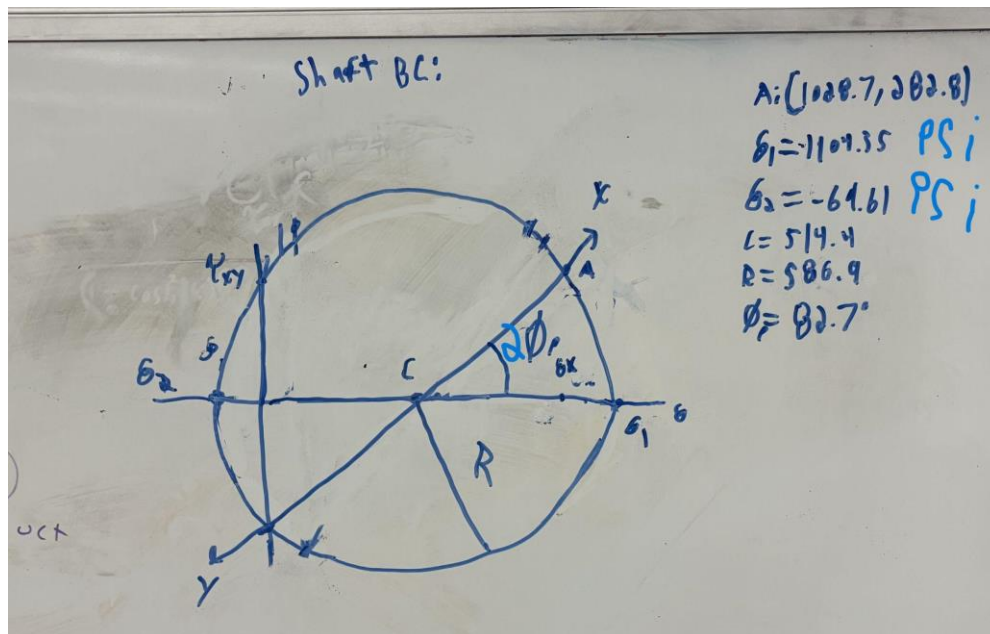 Shaft BC:
A:(1028.7, 282.8)
σ1=-1104.35 PSi
σ2=-64.61 PSi
C=514.4
R=586.9
φp=82.7°
X
A
τxy
2φp
σx
C
σ2
σ1
σ
R
Y
uct